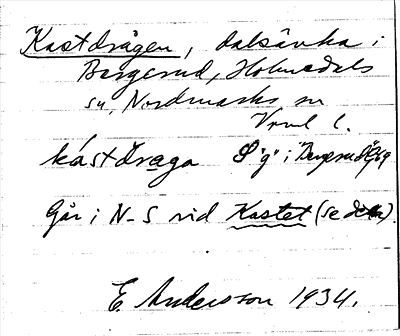 Kastdrågen, dalsänka i
Bergerud, Holmedals
sn, Nordmarks
Vrml l.
kástdraga "g" i Bergerud
Går i N-S vid Kastet (se d
E. Andersson 1934.